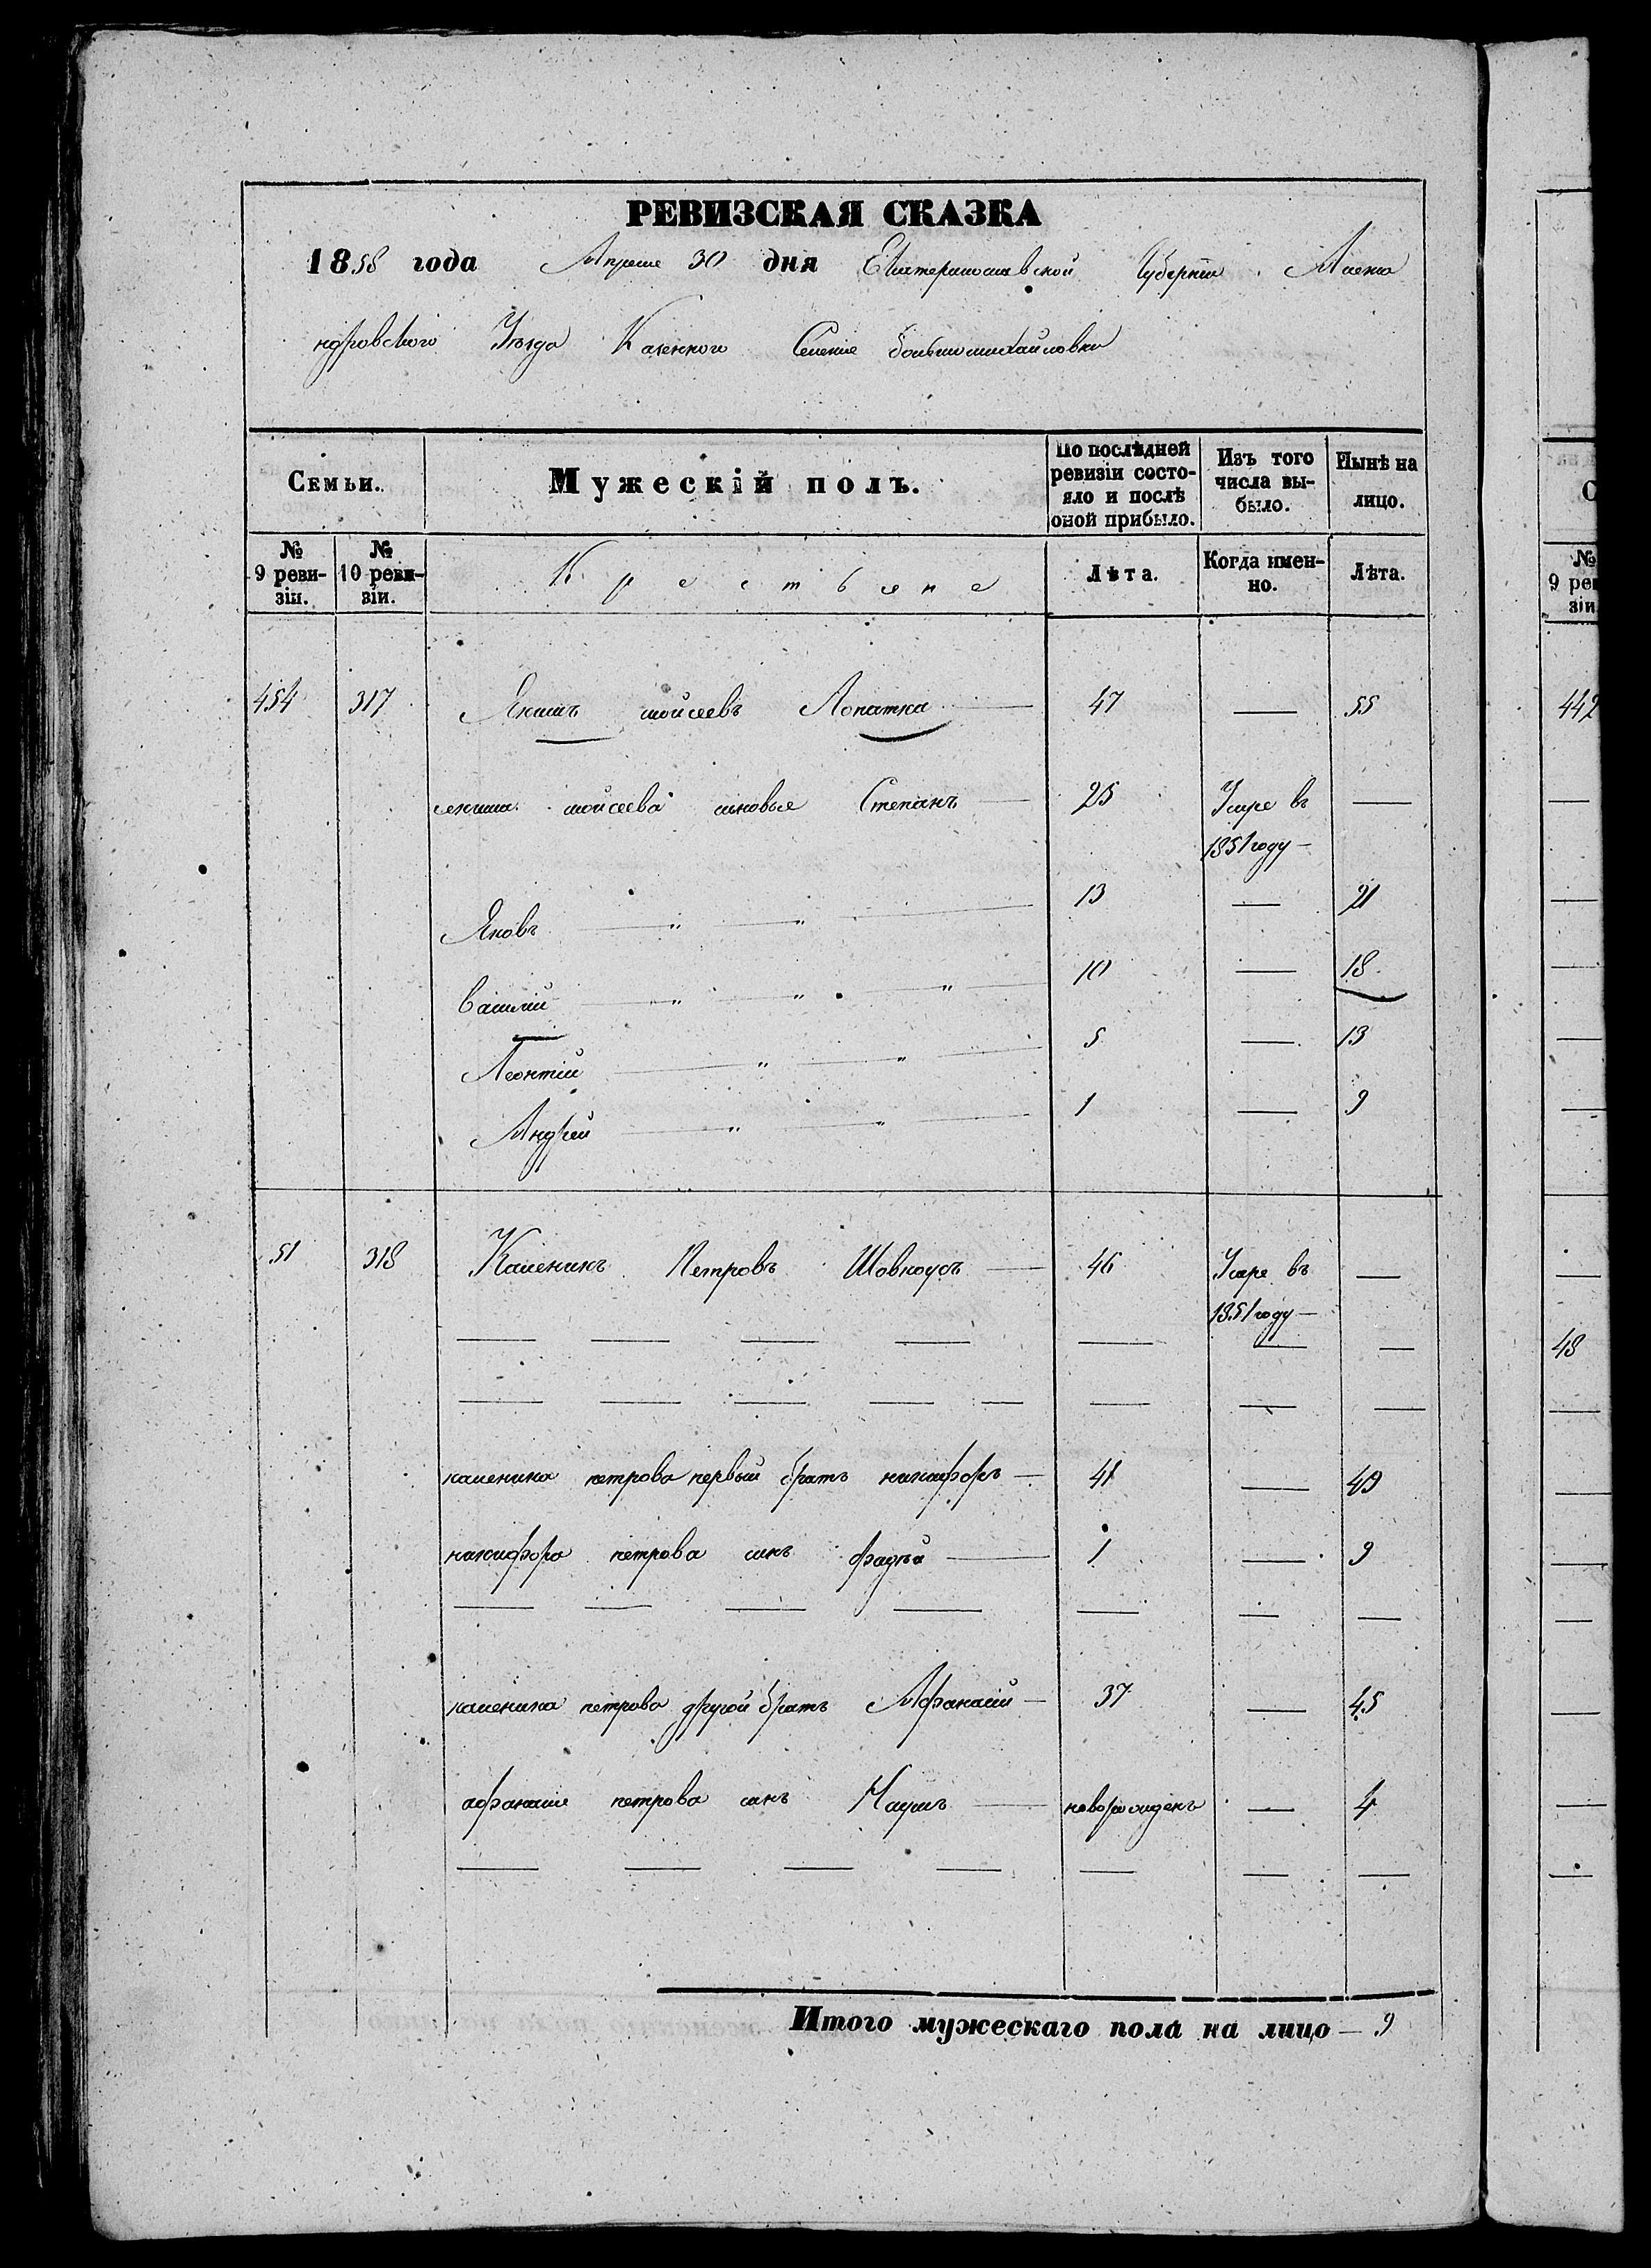 РЕВИЗСКАЯ СКАЗКА
1858 года Апреля 30 дня Екатеринославской Губернии Алекса
ндровского Уезда Казенного Селения большомихайловки
Семьи. Мужескій полъ. По послѣдней ревизіи состояло и послѣ оной прибыло. Изъ того числа выбыло. Нынѣ на лицо.
№ 9 ревизіи. № 10 ревизіи. Крестьяне Лѣта. Когда именно. Лѣта.
454 317 Якимъ мойсеевъ Лопатка — 47 — 55
якима мойсеева сыновья Степанъ — 25 Умре въ —
1851 году —
Яковъ — „ — „ — 13 — 21
василий — „ — „ — „ — 10 — 18
Леонтий — „ — „ — 5 — 13
Андрей — „ — „ — 1 — 9
51 318 Каленикъ Петровъ Шовкоусъ — 46 Умре въ —
1851 году —
каленика петрова первый братъ никифоръ — 41 — 49
никифора петрова синъ фадѣй — 1 — 9
каленика петрова другой братъ Афанасий — 37 — 45
афанасия петрова синъ Наумъ — новорожденъ — 4
Итого мужескаго пола на лицо — 9
№
9 рев
зіи
442
48